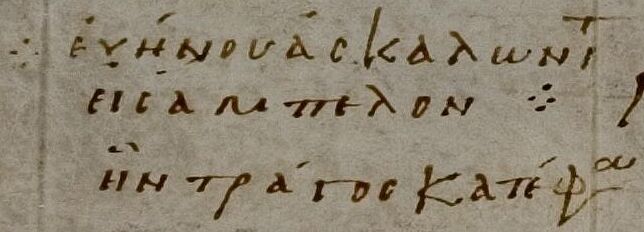 ⁘ εὐήνου ἀσκαλωνιτ
εἰς ἄμπελον ⁘
ἣν τράγος κατέφα